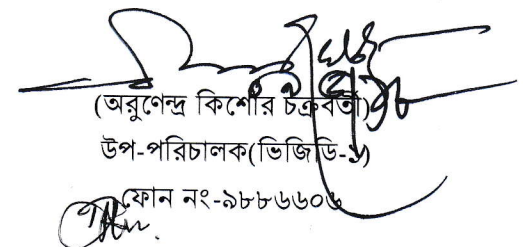 (অরুণেন্দ্র কিশোর চক্রবর্তী)
উপ-পরিচালক(ভিজিডি-১)
ফোন নং-৯৮৮৬৬০৬